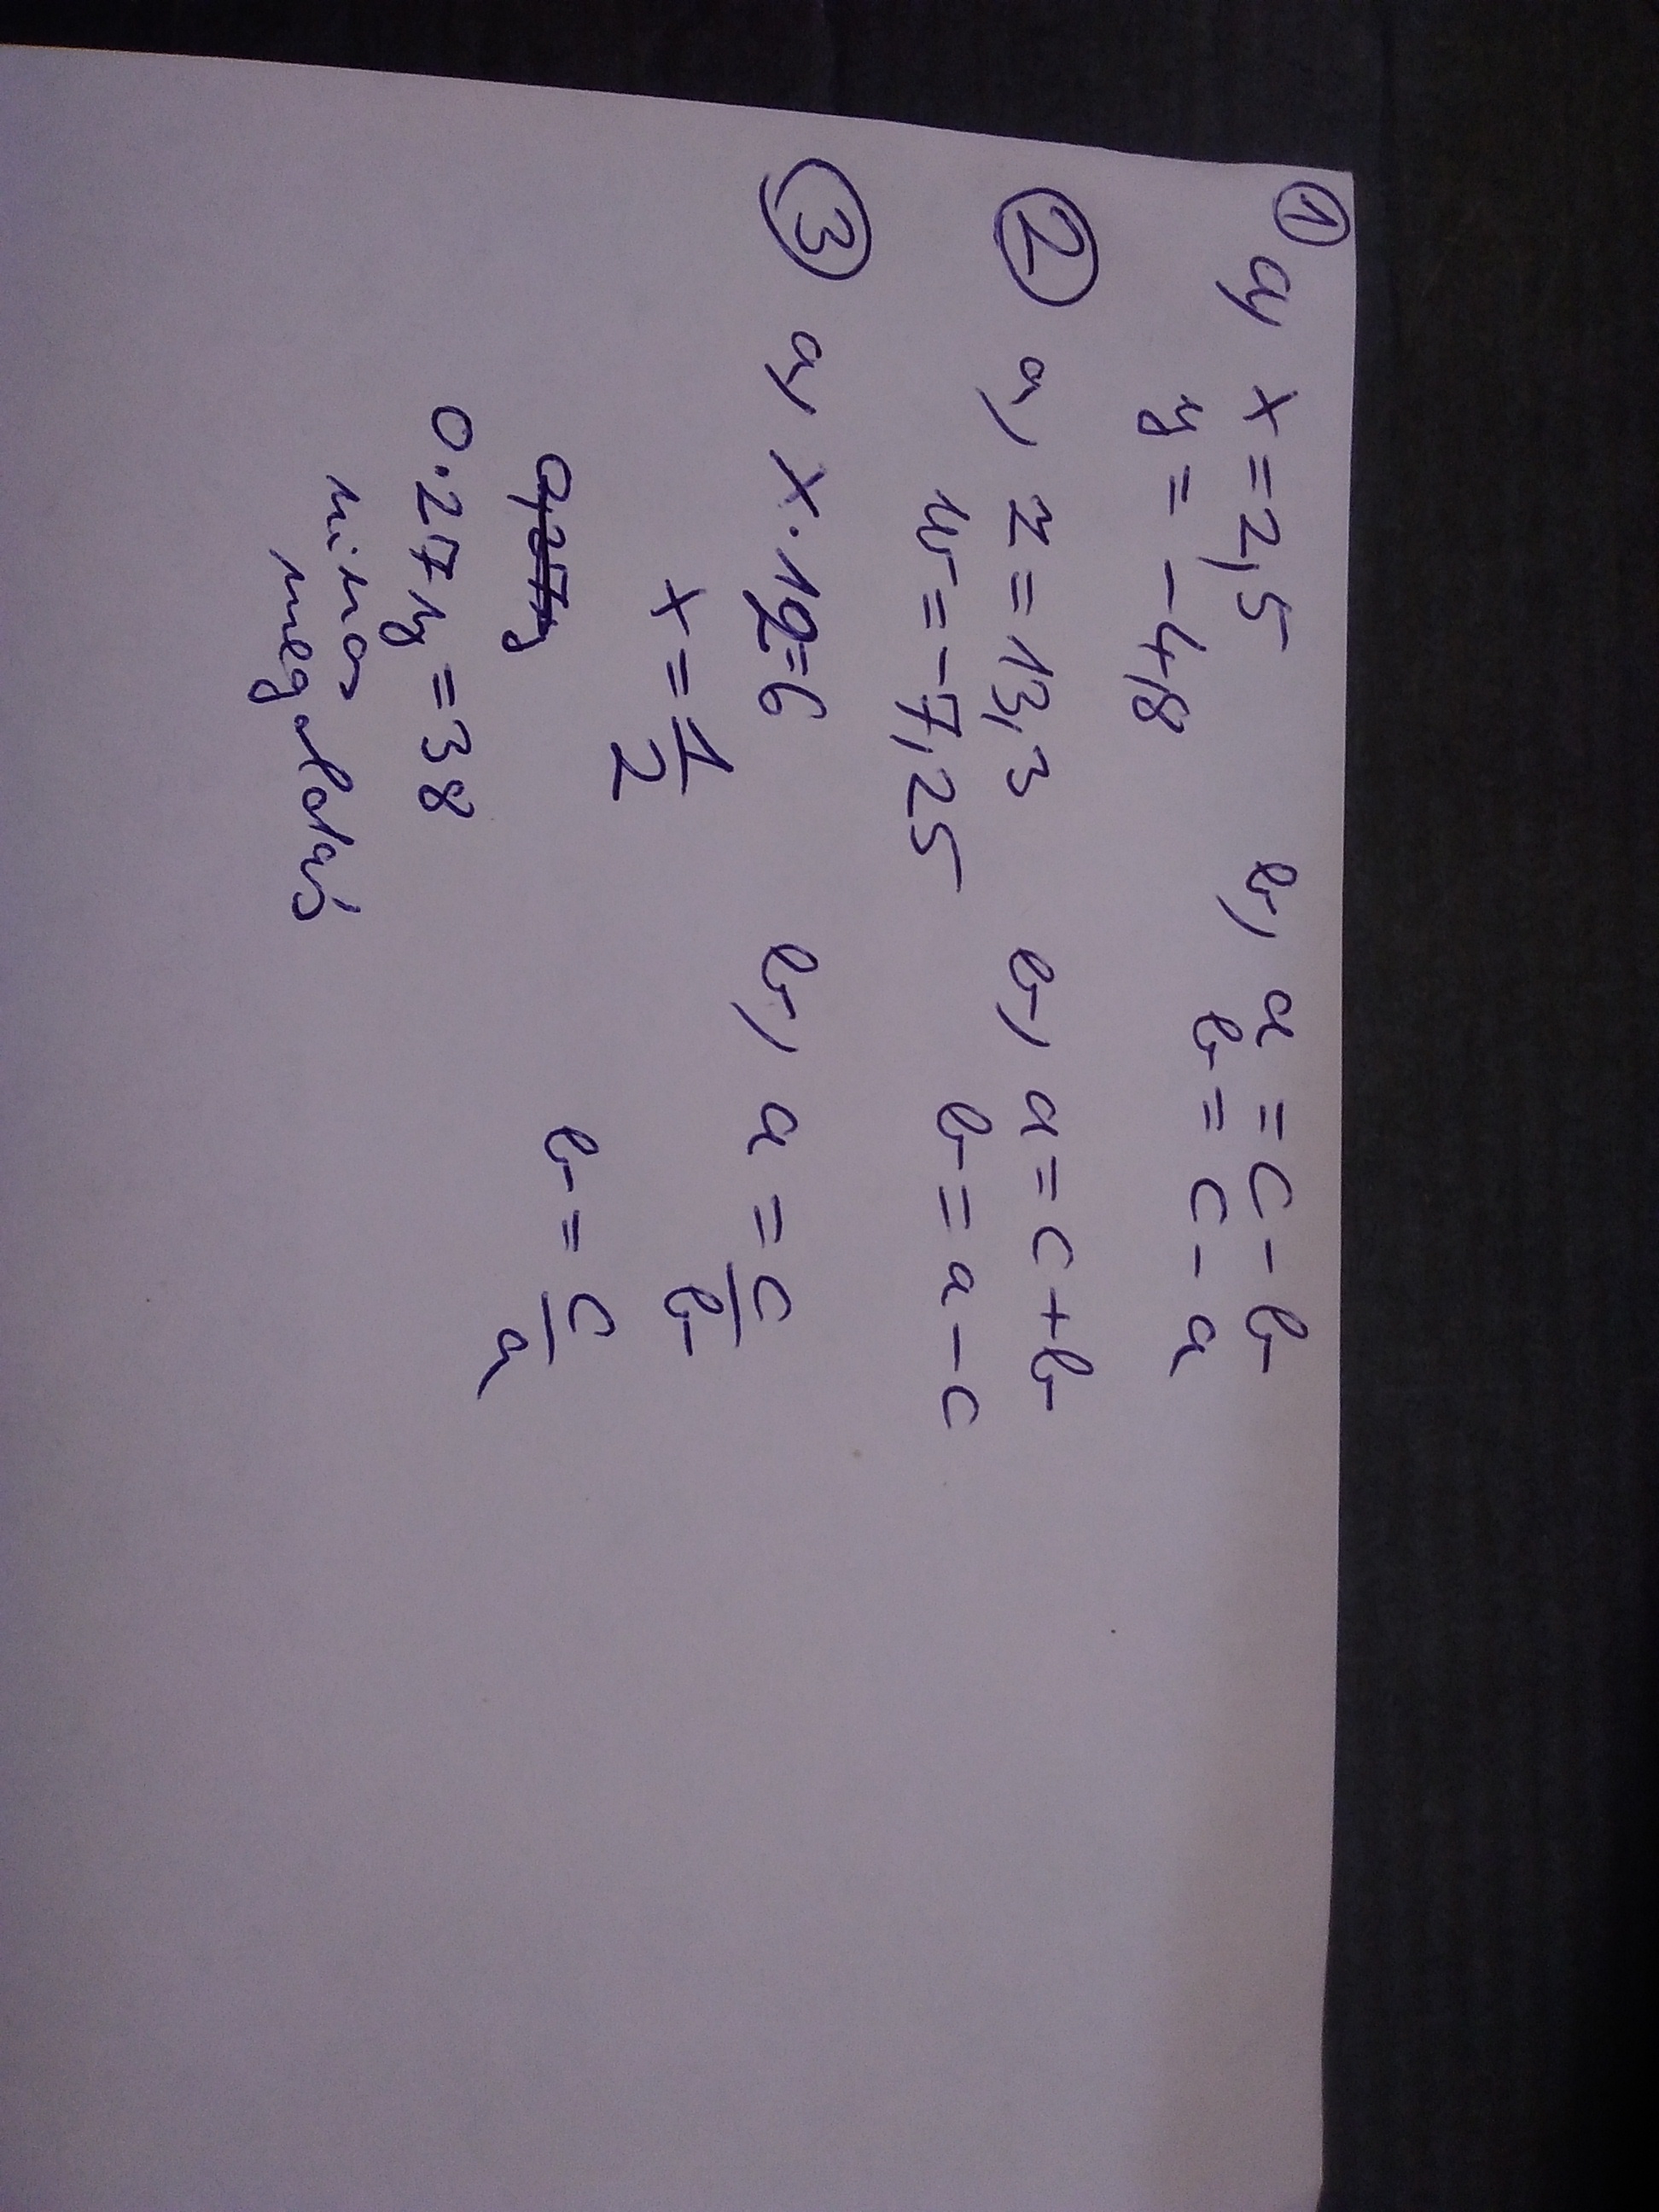 ① a, x = 2,5 b, a = c - b
y = -4,8 b = c - a
② a, z = 13,3 b, a = c + b
w = -7,25 b = a - c
③ a, x · 12 = 6 b, a = c/b
x = 1/2
b = c/a
0 · 27y = 38
nincs
megoldás